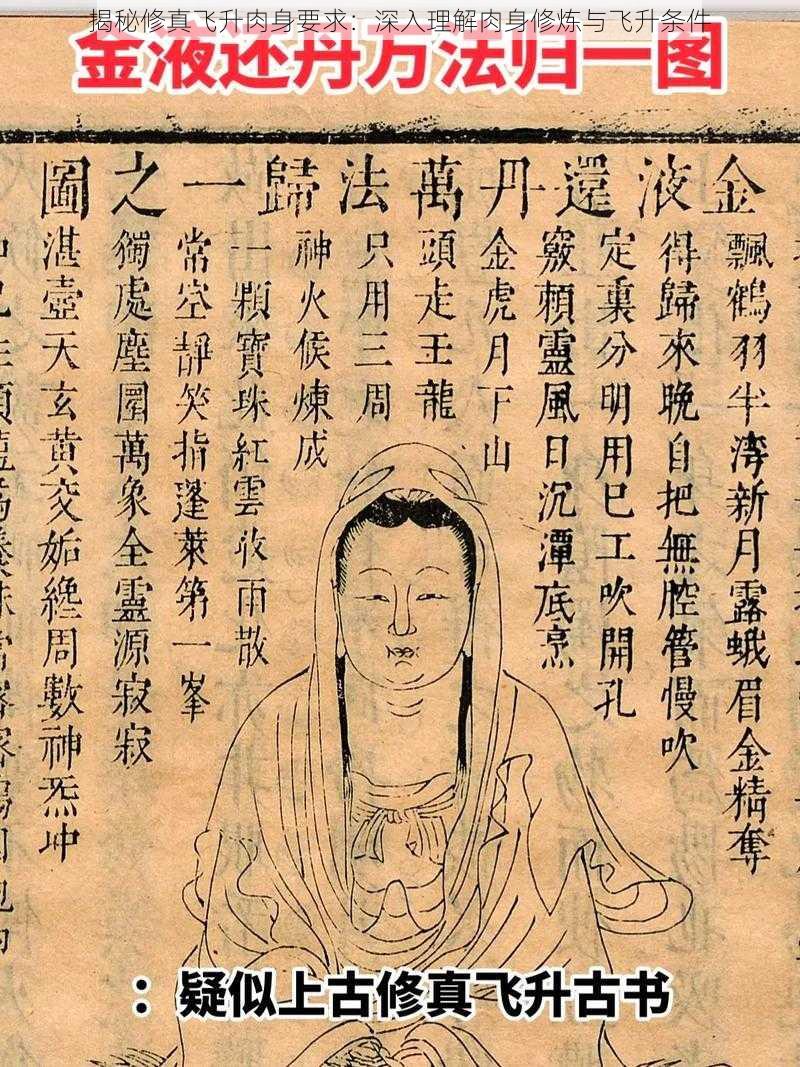 揭秘修真飞升肉身要求：深入理解肉身修炼与飞升条件
金液还丹万法归一图
金液還丹萬法歸一之圖
飄鶴羽半湾新月露蛾眉金精奪
得歸來晚自把無腔管慢吹
定裏分明用巳工吹開孔
竅頼靈風日沉潭底烹
金虎月下山
頭走玉龍
只用三周
神火候煉成
一顆寶珠紅雲收雨散
常空靜笑指蓬萊第一峯
獨處塵圜萬象全靈源寂寂
湛壺天玄黄交姤纔周數神炁坤
：疑似上古修真飞升古书